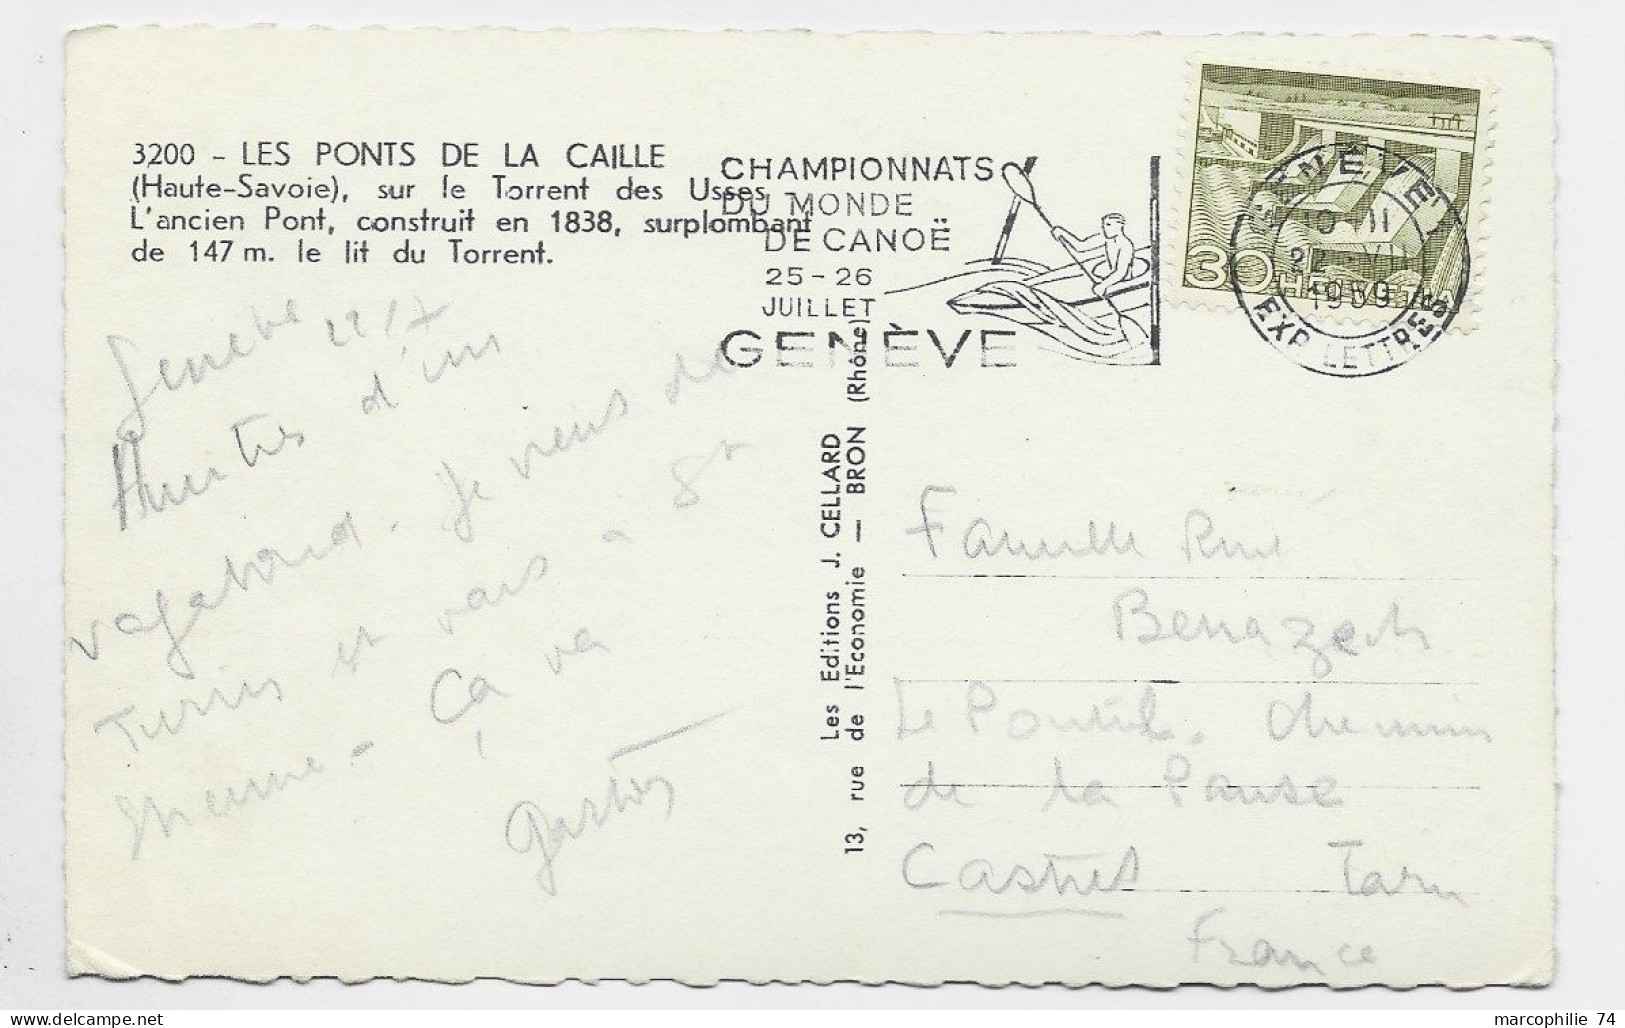 3200 - LES PONTS DE LA CAILLE
(Haute-Savoie), sur le Torrent des Usses
L'ancien Pont, construit en 1838, surplombant
de 147 m. le lit du Torrent.
CHAMPIONNATS
DU MONDE
DE CANOË
25-26
JUILLET
GENÈVE
30
HELVETIA
GENÈVE 1
10-11
22.VII
1959
EXP. LETTRES
Genève 22/7
Amitiés d'un
vagabond. Je viens de
Turin et vais à St
Etienne - Ça va
Gaston
Les Editions J. CELLARD
13, rue de l'Economie — BRON (Rhône)
Famille René
Benazech
Le Chemin
de la Pause
Castres Tarn
France
marcophilie 74